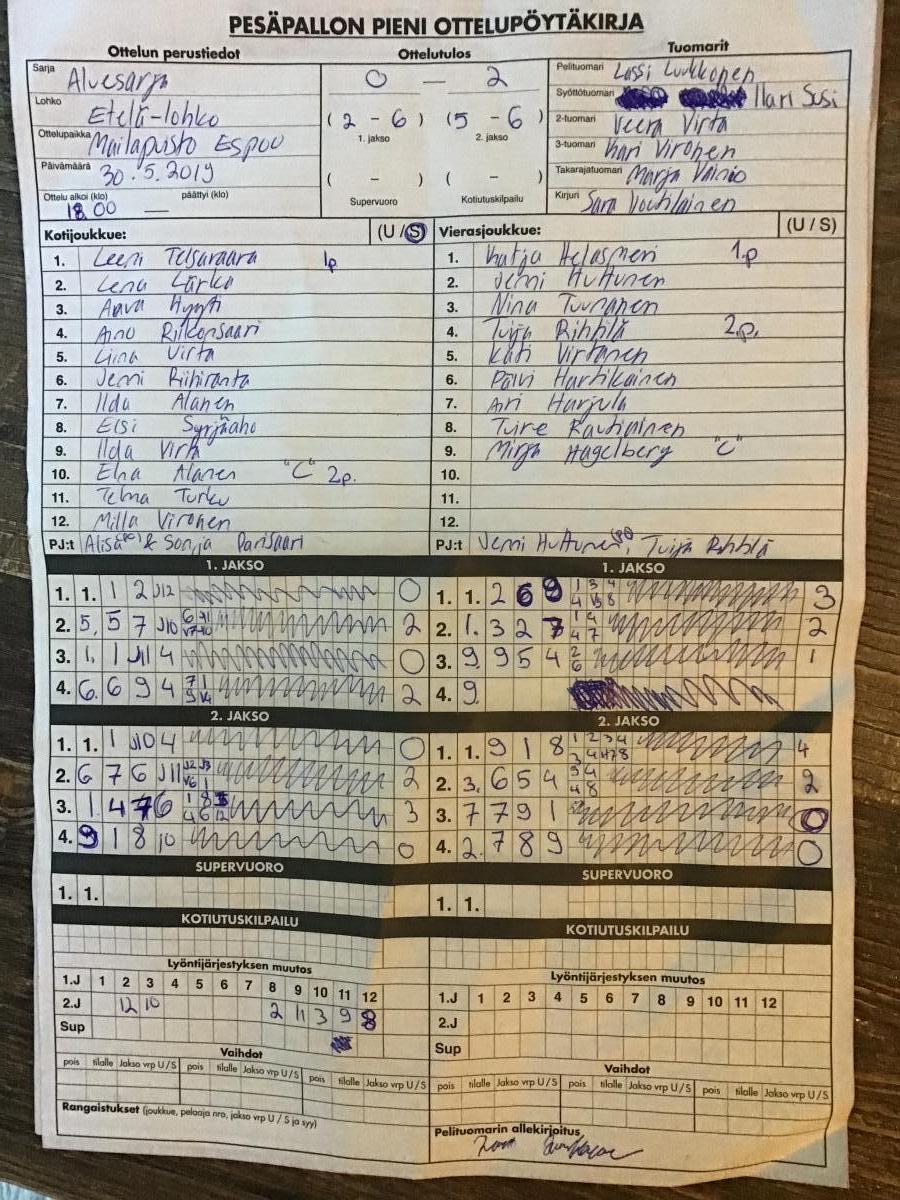 PESÄPALLON PIENI OTTELUPÖYTÄKIRJA
Ottelun perustiedot
Sarja Aluesarja
Lohko Etelä-lohko
Ottelupaikka Mailapuisto Espoo
Päivämäärä 30.5.2019
Ottelu alkoi (klo) päättyi (klo)
18.00 —
Ottelutulos
0 — 2
( 2 - 6 ) ( 5 - 6 )
1. jakso 2. jakso
( - ) ( - )
Supervuoro Kotiutuskilpailu
Tuomarit
Pelituomari Lassi Luukkonen
Syöttötuomari Ilari Susi
2-tuomari Veera Virta
3-tuomari Kari Vironen
Takarajatuomari Marja Vainio
Kirjuri Sara Voutilainen
Kotijoukkue: (U / S)
1. Leeni 1p
2. Lena Lärka
3. Aava
4. Aino
5. Liina Virta
6. Jenni Riihiranta
7. Ilda Alanen
8. Elsi Syrjäaho
9. Ilda Virta
10. Elna Alanen "C" 2p.
11. Telma Turku
12. Milla Vironen
PJ:t Alisa & Sonja Parisaari
Vierasjoukkue: (U / S)
1. Katja Helasmeri 1.p
2. Jenni Huttunen
3. Nina Tuunanen
4. Tuija Rihtilä 2.p.
5. Kati Virtanen
6. Päivi Hartikainen
7. Airi Harjula
8. Tuire Rautiainen
9. Mirja Hagelberg "C"
10.
11.
12.
PJ:t Jenni Huttunen, Tuija Rihtilä
1. JAKSO
1. 1. 1 2 J12 0
2. 5. 5 7 J10 2
3. 1. 1 J11 4 0
4. 6. 6 9 4 2
2. JAKSO
1. 1. 1 J10 4 0
2. 6 7 6 J11 2
3. 1. 4 7 6 3
4. 9 1 8 10 0
SUPERVUORO
1. 1.
KOTIUTUSKILPAILU
Lyöntijärjestyksen muutos
1.J 1 2 3 4 5 6 7 8 9 10 11 12
2.J 12 10 2 11 3 9 8
Sup
Vaihdot
pois tilalle Jakso vrp U/S pois tilalle Jakso vrp U/S pois tilalle Jakso vrp U/S
Rangaistukset (joukkue, pelaaja nro, jakso vrp U / S ja syy)
1. JAKSO
1. 1. 2 6 9 3
2. 1. 3 2 7 2
3. 9. 9 5 4 1
4. 9.
2. JAKSO
1. 1. 9 1 8 4
2. 3. 6 5 4 2
3. 7 7 9 1 0
4. 2. 7 8 9 0
SUPERVUORO
1. 1.
KOTIUTUSKILPAILU
Lyöntijärjestyksen muutos
1.J 1 2 3 4 5 6 7 8 9 10 11 12
2.J
Sup
Vaihdot
pois tilalle Jakso vrp U/S pois tilalle Jakso vrp U/S pois tilalle Jakso vrp U/S
Pelituomarin allekirjoitus